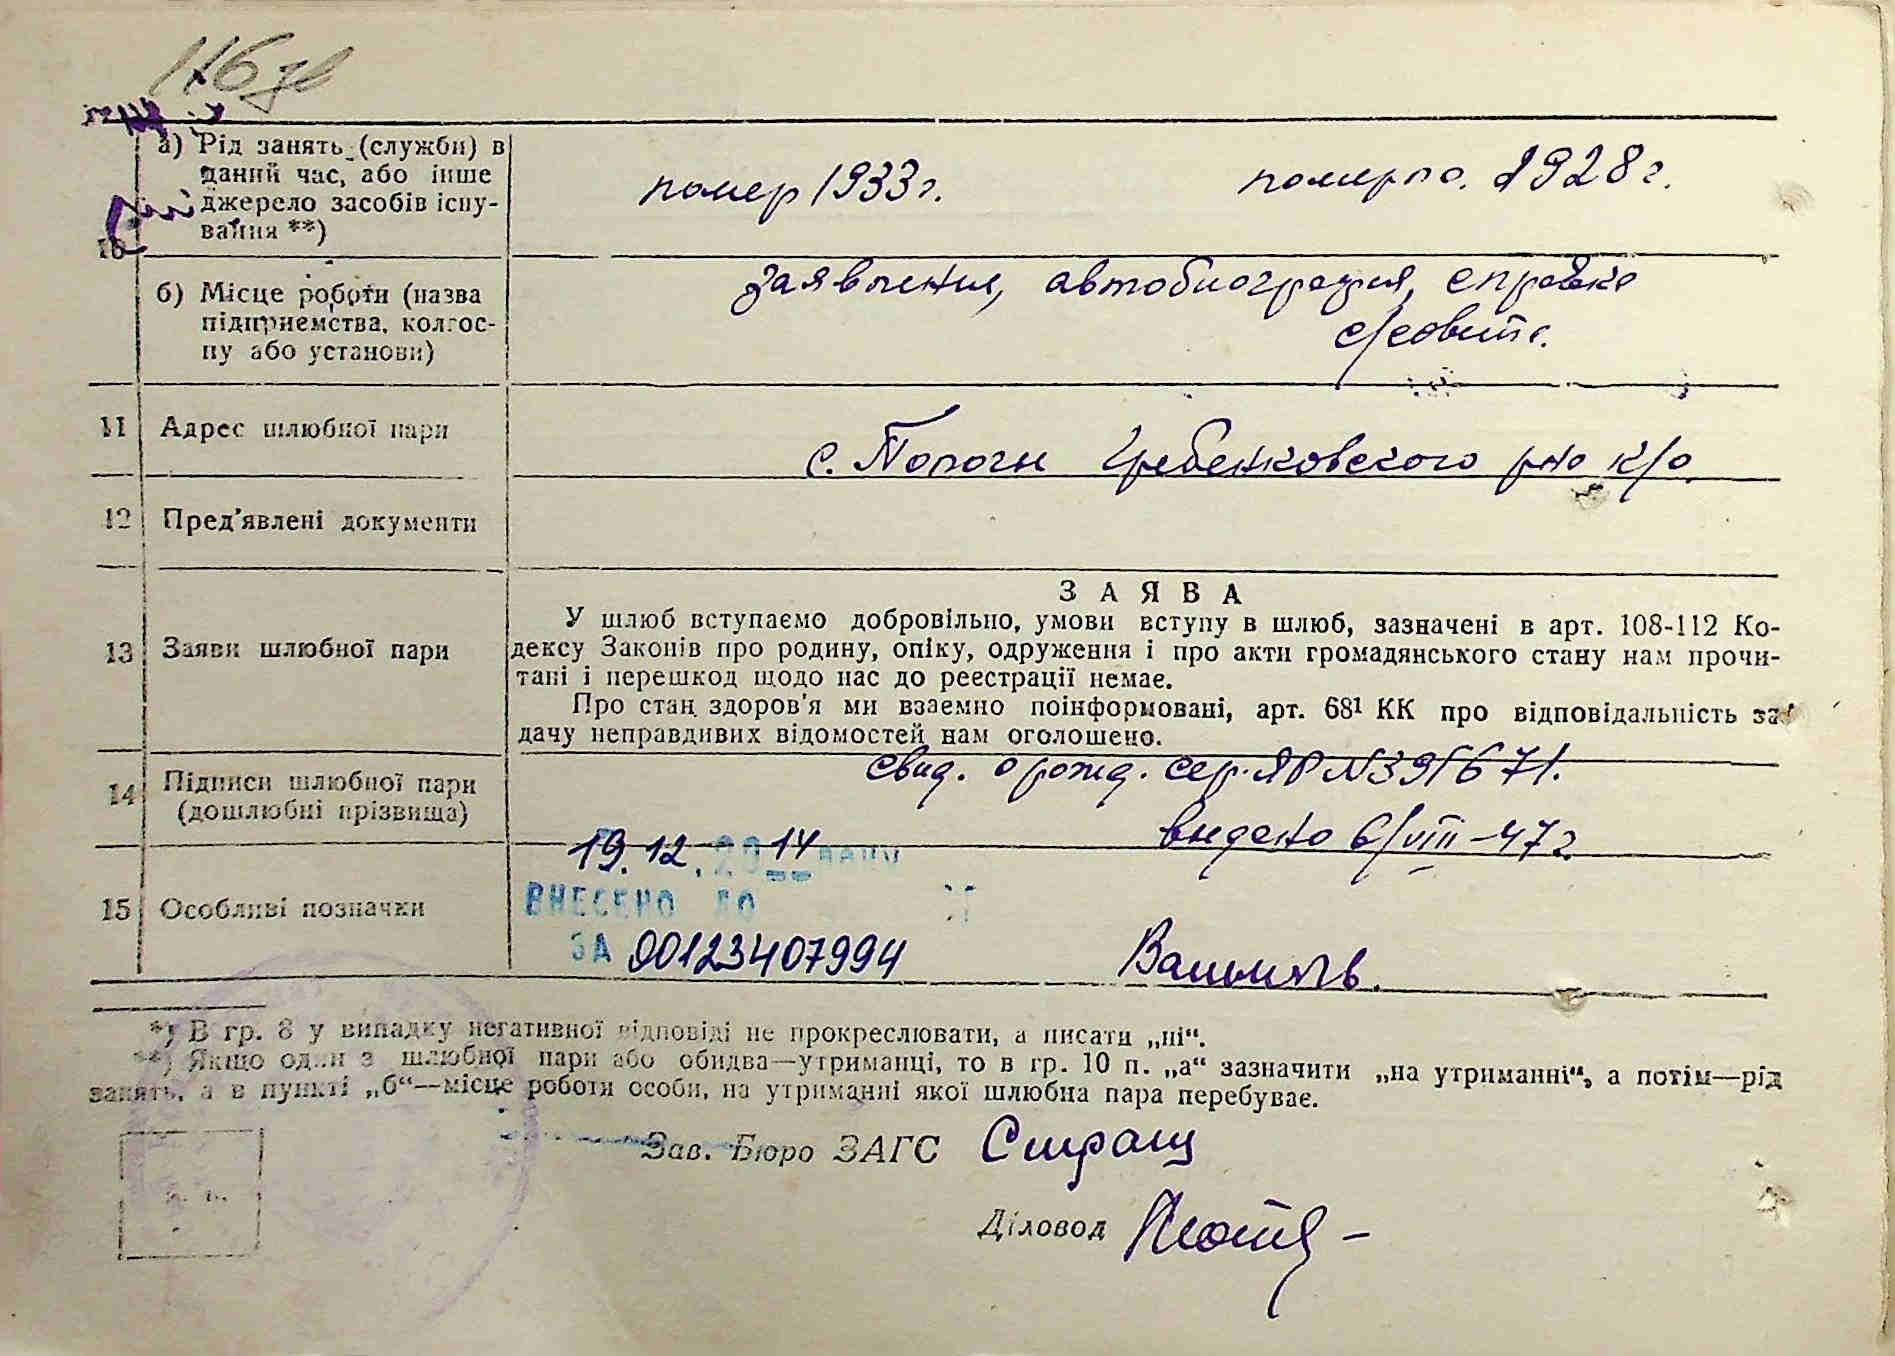 а) Рід занять (служби) в
даний час, або інше
джерело засобів існу-
вання **)
10
помер 1933 г.
померла. 1928 г.
б) Місце роботи (назва
підприємства, колгос-
пу або установи)
заявления, автобиография, справка
с/совета.
11 Адрес шлюбної пари
с. Пологи Гребенковского р-но к/о
12 Пред'явлені документи
13 Заяви шлюбної пари
ЗАЯВА
У шлюб вступаємо добровільно, умови вступу в шлюб, зазначені в арт. 108-112 Ко-
дексу Законів про родину, опіку, одруження і про акти громадянського стану нам прочи-
тані і перешкод щодо нас до реєстрації немає.
Про стан здоров'я ми взаємно поінформовані, арт. 68¹ КК про відповідальність за
дачу неправдивих відомостей нам оголошено.
14 Підписи шлюбної пари
(дошлюбні прізвища)
свид. о рожд. сер. ЯР N 391671.
выдано 6/VIII-47 г.
15 Особливі позначки
19.12.2014
ВНЕСЕНО ДО
ЗА 00123407994
*) В гр. 8 у випадку негативної відповіді не прокреслювати, а писати „ні“.
**) Якщо один з шлюбної пари або обидва—утриманці, то в гр. 10 п. „а“ зазначити „на утриманні“, а потім—рід
занять, а в пункті „б“—місце роботи особи, на утриманні якої шлюбна пара перебуває.
Зав. Бюро ЗАГС
Діловод